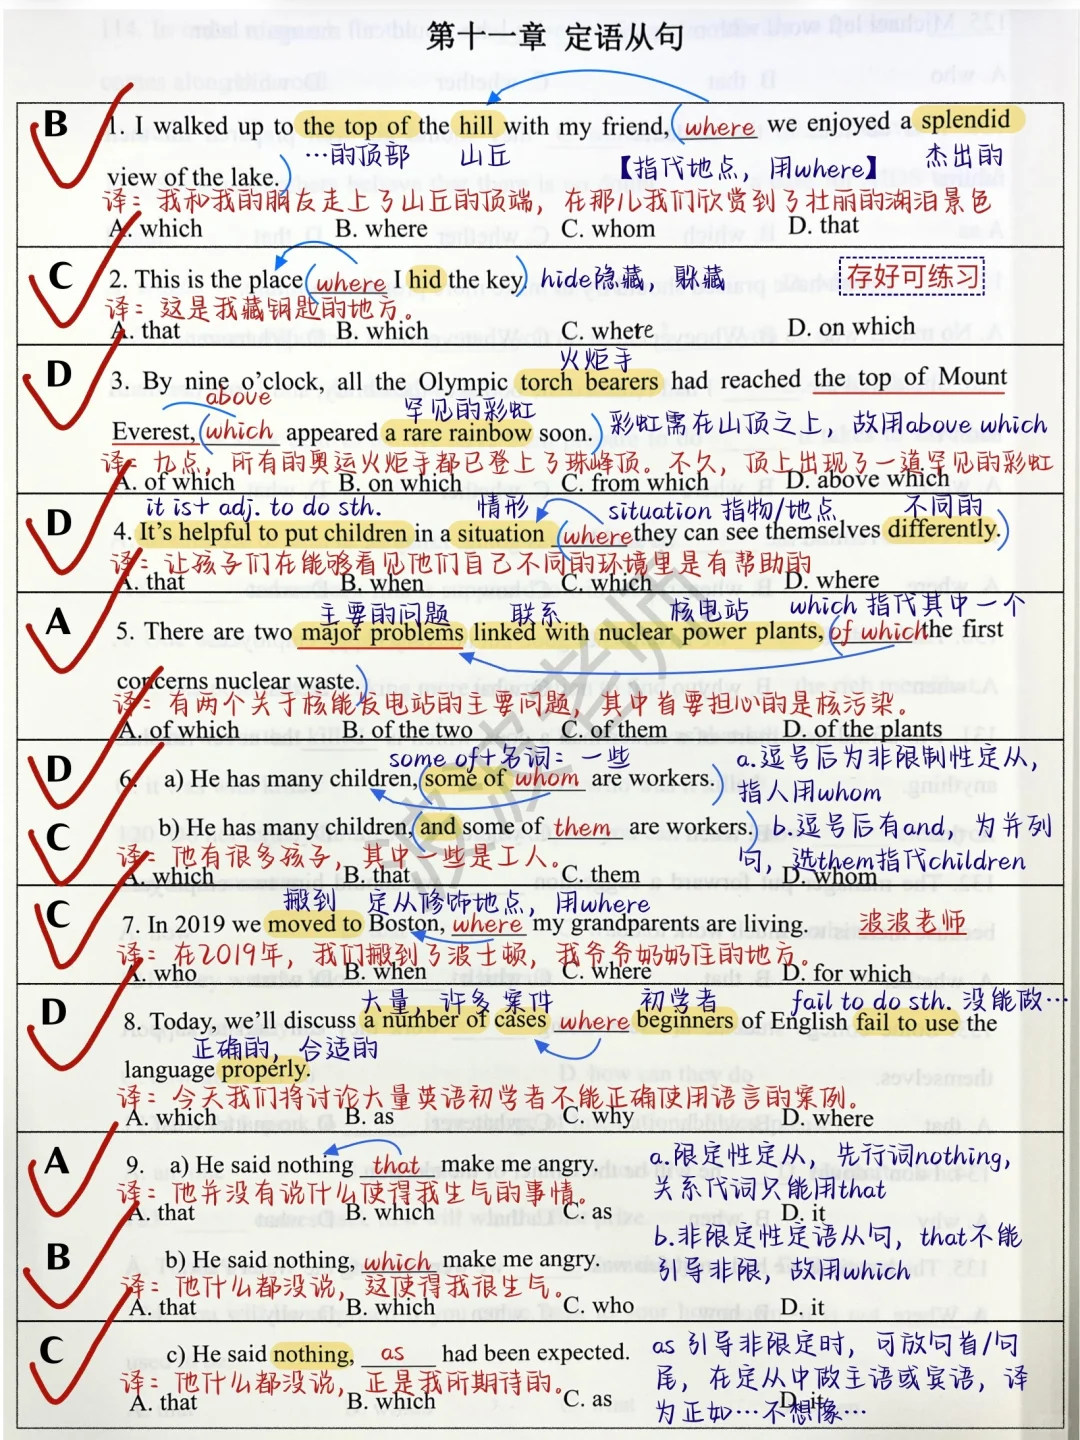 第十一章 定语从句
B
1. I walked up to the top of the hill with my friend, where we enjoyed a splendid
…的顶部 山丘 【指代地点，用where】 杰出的
view of the lake.
译：我和我的朋友走上了山丘的顶端，在那儿我们欣赏到了壮丽的湖泊景色
A. which B. where C. whom D. that
C
2. This is the place where I hid the key. hide隐藏，躲藏 存好可练习
译：这是我藏钥匙的地方。
A. that B. which C. where D. on which
D
火炬手
3. By nine o'clock, all the Olympic torch bearers had reached the top of Mount
above 罕见的彩虹
Everest, which appeared a rare rainbow soon. 彩虹需在山顶之上，故用above which
译：九点，所有的奥运火炬手都已登上了珠峰顶。不久，顶上出现了一道罕见的彩虹
A. of which B. on which C. from which D. above which
D
it is+ adj. to do sth. 情形 situation 指物/地点 不同的
4. It's helpful to put children in a situation where they can see themselves differently.
译：让孩子们在能够看见他们自己不同的环境里是有帮助的
A. that B. when C. which D. where
A
主要的问题 联系 核电站 which 指代其中一个
5. There are two major problems linked with nuclear power plants, of which the first
concerns nuclear waste.
译：有两个关于核能发电站的主要问题，其中首要担心的是核污染。
A. of which B. of the two C. of them D. of the plants
D
some of+名词：一些
6. a) He has many children, some of whom are workers. a.逗号后为非限制性定从，
指人用whom
C
b) He has many children, and some of them are workers. b.逗号后有and，为并列
句，选them指代children
译：他有很多孩子，其中一些是工人。
A. which B. that C. them D. whom
C
搬到 定从修饰地点，用where
7. In 2019 we moved to Boston, where my grandparents are living. 波波老师
译：在2019年，我们搬到了波士顿，我爷爷奶奶住的地方。
A. who B. when C. where D. for which
D
大量 许多 案件 初学者 fail to do sth. 没能做…
8. Today, we'll discuss a number of cases where beginners of English fail to use the
正确的，合适的
language properly.
译：今天我们将讨论大量英语初学者不能正确使用语言的案例。
A. which B. as C. why D. where
A
9. a) He said nothing that make me angry. a.限定性定从，先行词nothing，
关系代词只能用that
译：他并没有说什么使得我生气的事情。
A. that B. which C. as D. it
B
b) He said nothing, which make me angry. b.非限定性定语从句，that不能
引导非限，故用which
译：他什么都没说，这使得我很生气。
A. that B. which C. who D. it
C
c) He said nothing, as had been expected. as 引导非限定时，可放句首/句
尾，在定从中做主语或宾语，译
为正如…不想像…
译：他什么都没说，正是我所期待的。
A. that B. which C. as D. it
波波老师